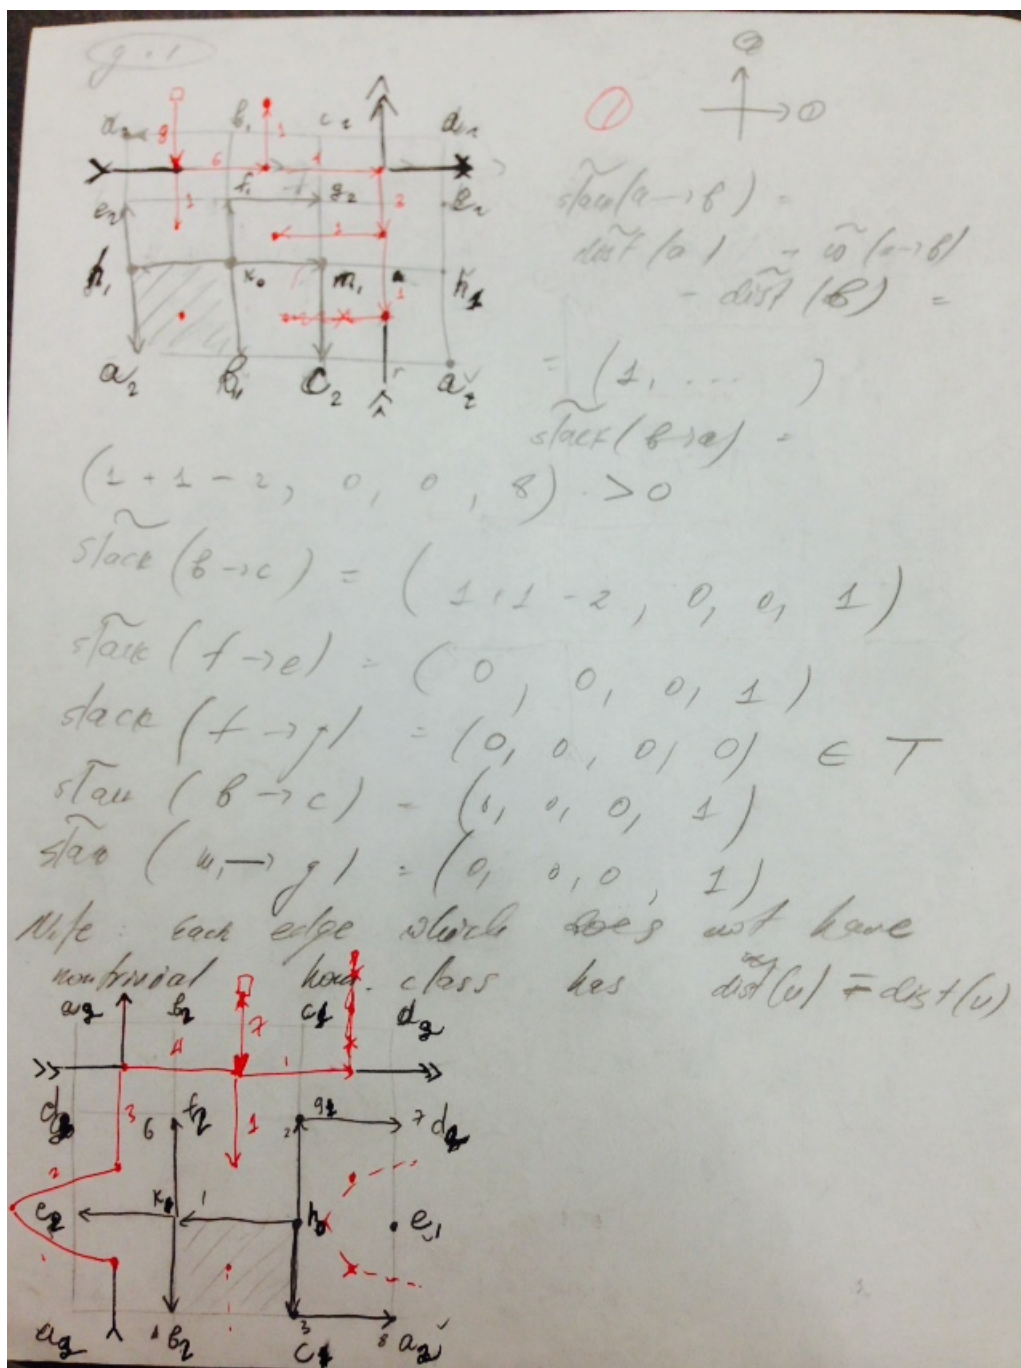 g = 1
②
①
①
d₂ b₁ c₂ d₂
8 1
6 1
e₂ f₁ g₂ e₂
1 2
1
h₁ k₀ m₁ h₁
1
a₂ b₁ c₂ a₂
slack(a→b) =
dist(a) - w(a→b)
- dist(b) =
= (1, ... )
slack(b→a) =
(1+1-2, 0, 0, 8) > 0
slack(b→c) = (1+1-2, 0, 0, 1)
slack(f→e) = (0, 0, 0, 1)
slack(f→g) = (0, 0, 0, 0) ∈ T
slack(b→c) = (0, 0, 0, 1)
slack(m₁→g) = (0, 0, 0, 1)
Note: each edge which does not have
nontrivial hom. class has dist(u) = dist(v)
a₂ b₂ c₁ d₂
7
4 1
3 6 f₂ 1 2 g₂ 7 d₂
2
e₂ k₁ 1 h₀ e₁
a₂ b₂ 3 c₁ 8 a₂